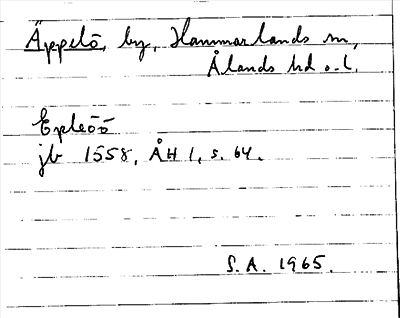 Äppelö, by, Hammarlands sn,
Ålands hd o. l.
Epleöö
jb 1558, ÅH 1, s. 64.
S. A. 1965.